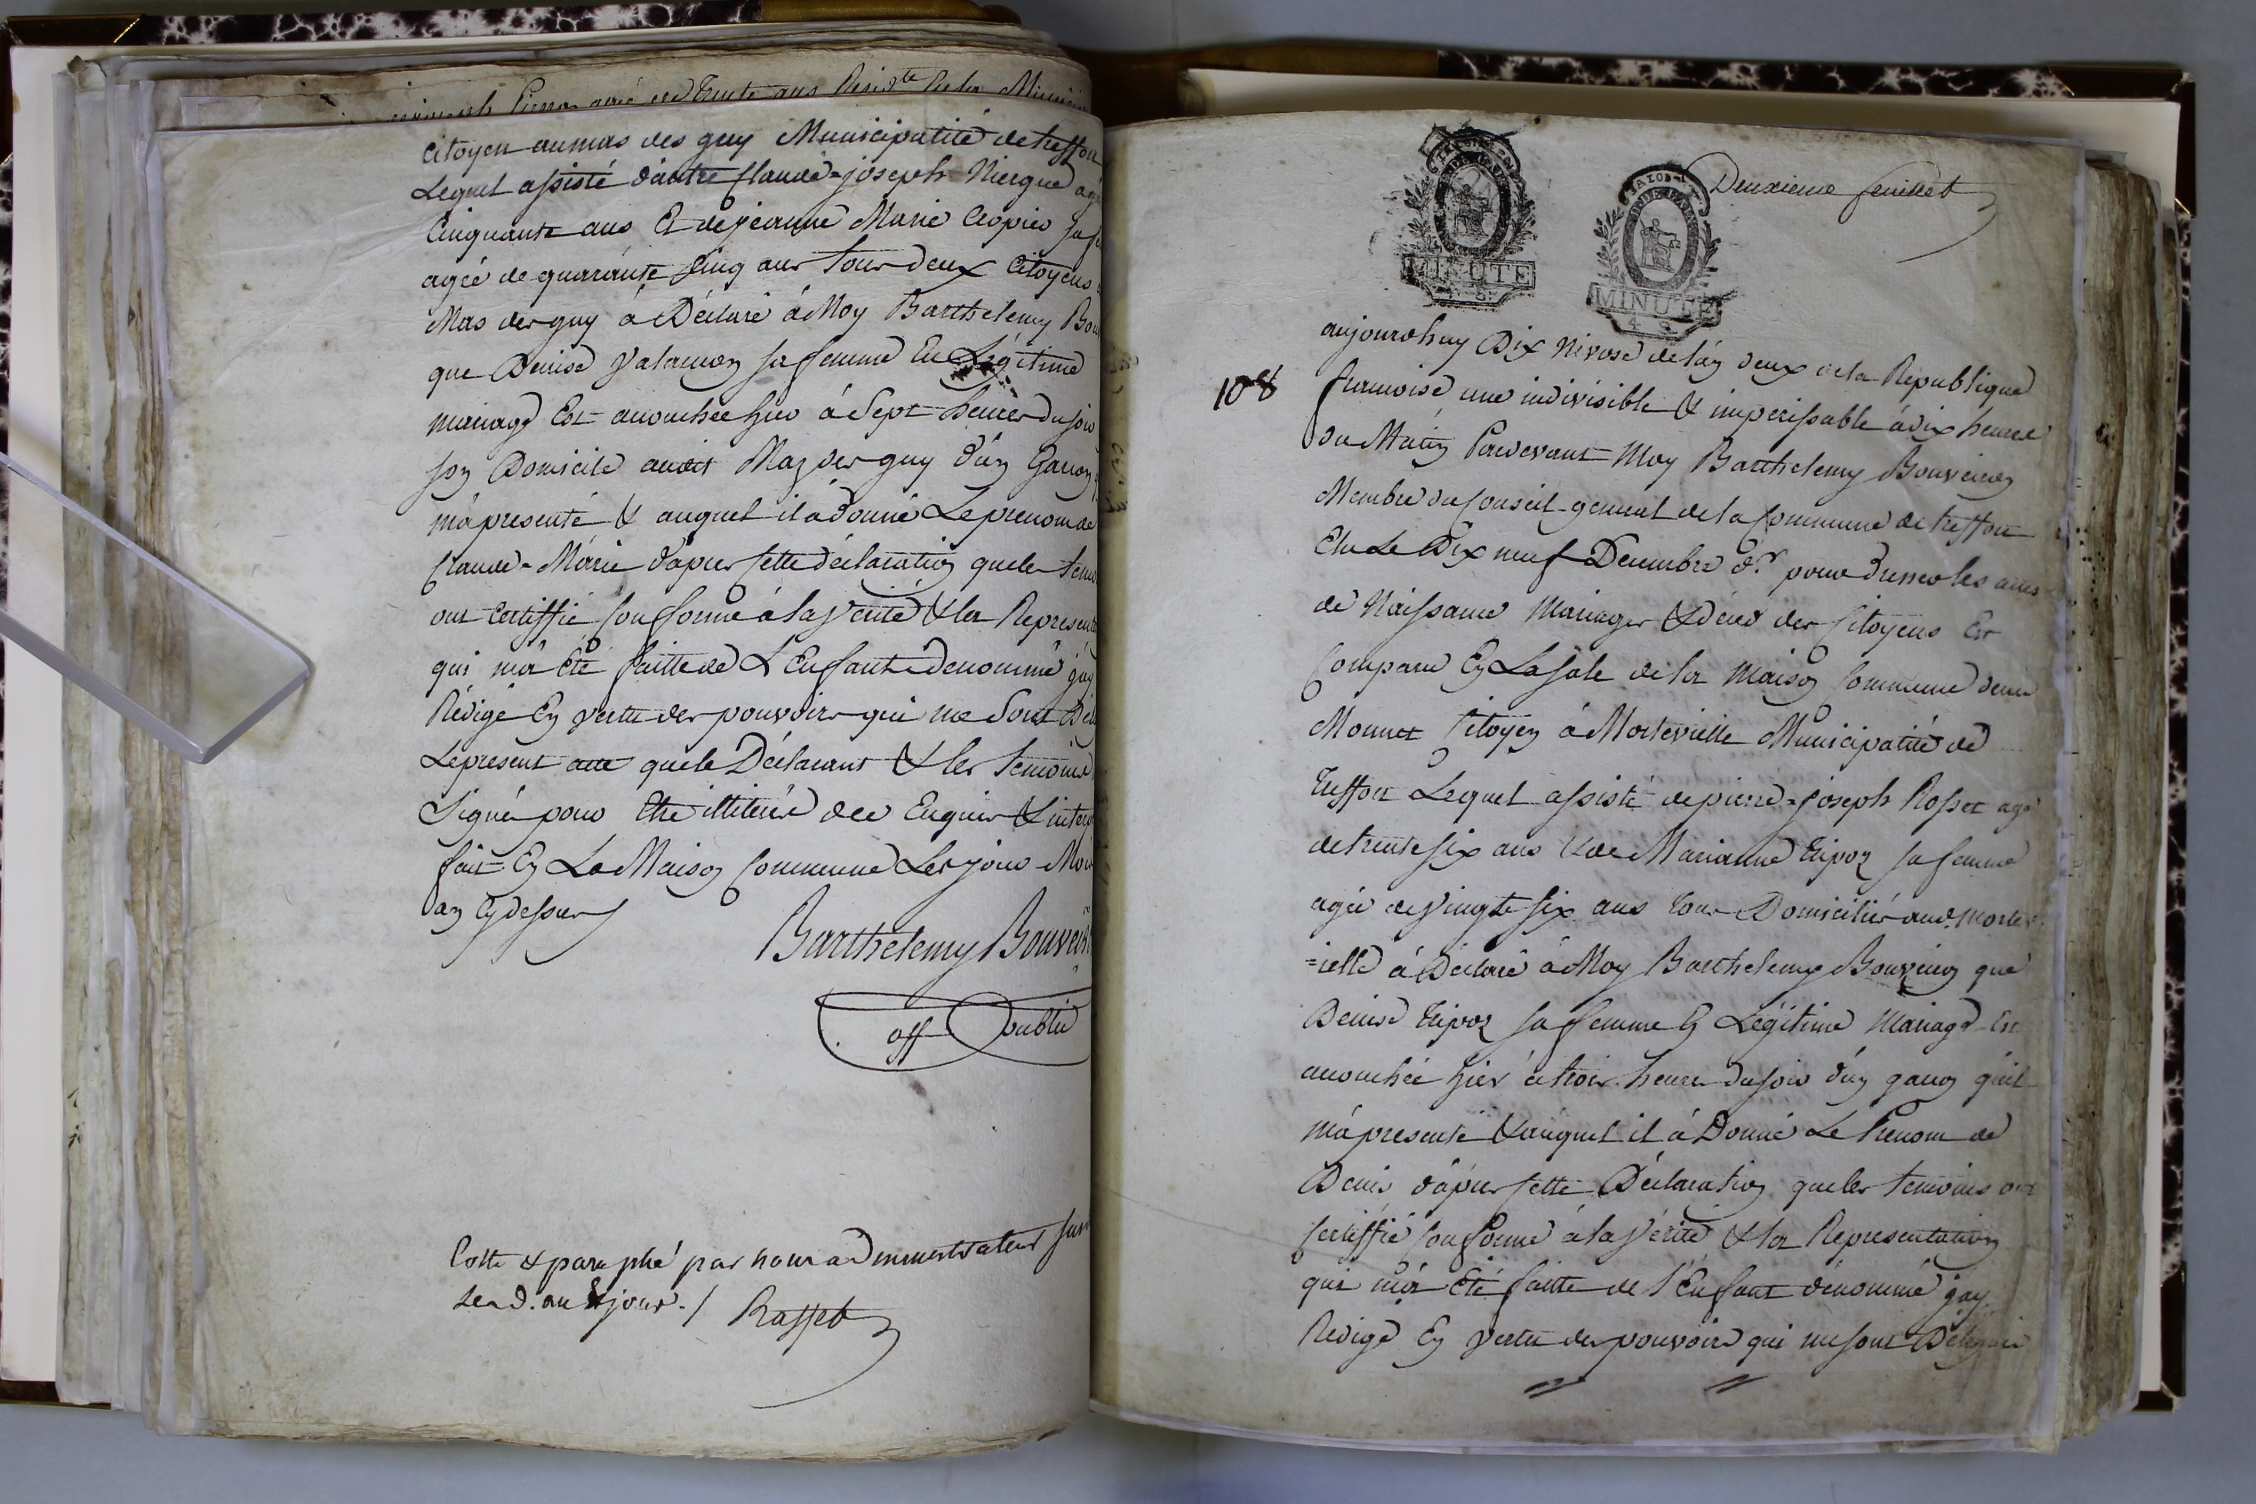 citoyen au mas des guy Municipalité de treffort
Lequel assisté d'autre Claude=joseph Niergue
Cinquante ans Et de jeanne Marie Cropier sa
agée de quarante Cinq ans tous deux Citoyens
Mas des guy à Déclaré à Moy Barthelemy
que Denise sa femme En Légitime
mariage Est accouchée hier à Sept heures du soir
son Domicile audit Maz des guy d'un Garçon
m'a presenté & auquel il a donné Le prenom de
Claude=Marie d'apres cette déclaration que les
ont certiffié Conforme à la Verité & la
qui m'a Eté faitte de L'Enfant denommé j'ay
Rédigé En vertu des pouvoirs qui me Sont
Le present acte que le Déclarant & les temoins
Signé pour Etre illiterés de ce Enquis &
fait En La Maison Commune Les jour
an Cy dessus
Barthelemy
off public
Cotté & paraphé par nous administrateur
led. an & jour ./ Rasset
MINUTE
4 S.
MINUTE
4 S.
Deuxieme feuillet
108
aujourdhuy Dix Nivose de l'an deux de la Republique
francoise une indivisible & imperissable à dix heures
du Matin Pardevant Moy Barthelemy Bouveiron
Membre du Conseil general de la Commune de treffort
Elu Le Dix neuf Decembre dr pour dresser les actes
de Naissance Mariages & déces des Citoyens Est
Comparu En La Sale de la Maison Commune denis
Monnet Citoyen à Mortevielle Municipalité de
Treffort Lequel assisté de pierre=joseph Rosset agé
de trente six ans & de Marianne Tripoz sa femme
agée de Vingte six ans tous Domiciliés aud. morte
=ielle à Déclaré à Moy Barthelemy Bouveiron que
Denise Tripoz sa femme En Légitime Mariage Est
accouchée hier à trois heures du soir d'un garçon qu'il
m'a presenté & auquel il a Donné Le Prenom de
Denis d'apres cette Déclaration que les temoins ont
Certiffié Conforme à la Vérité & la Representation
qui m'a Eté faitte de l'Enfant dénommé j'ay
Rédigé En Vertu des pouvoirs qui me sont Délegués